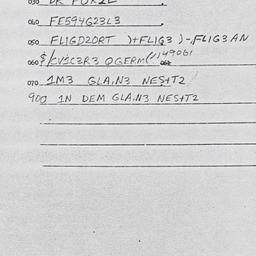 030 DR FOX2L
040 FE594G23L3
050 FL1GD2ORT )+FL1G3 )-,FL1G3 AN
060 $/CV1C3R3 QGERM(/149061
070 1M3 GLA,N3 NES+T2
900 1N DEM GLA,N3 NES+T2